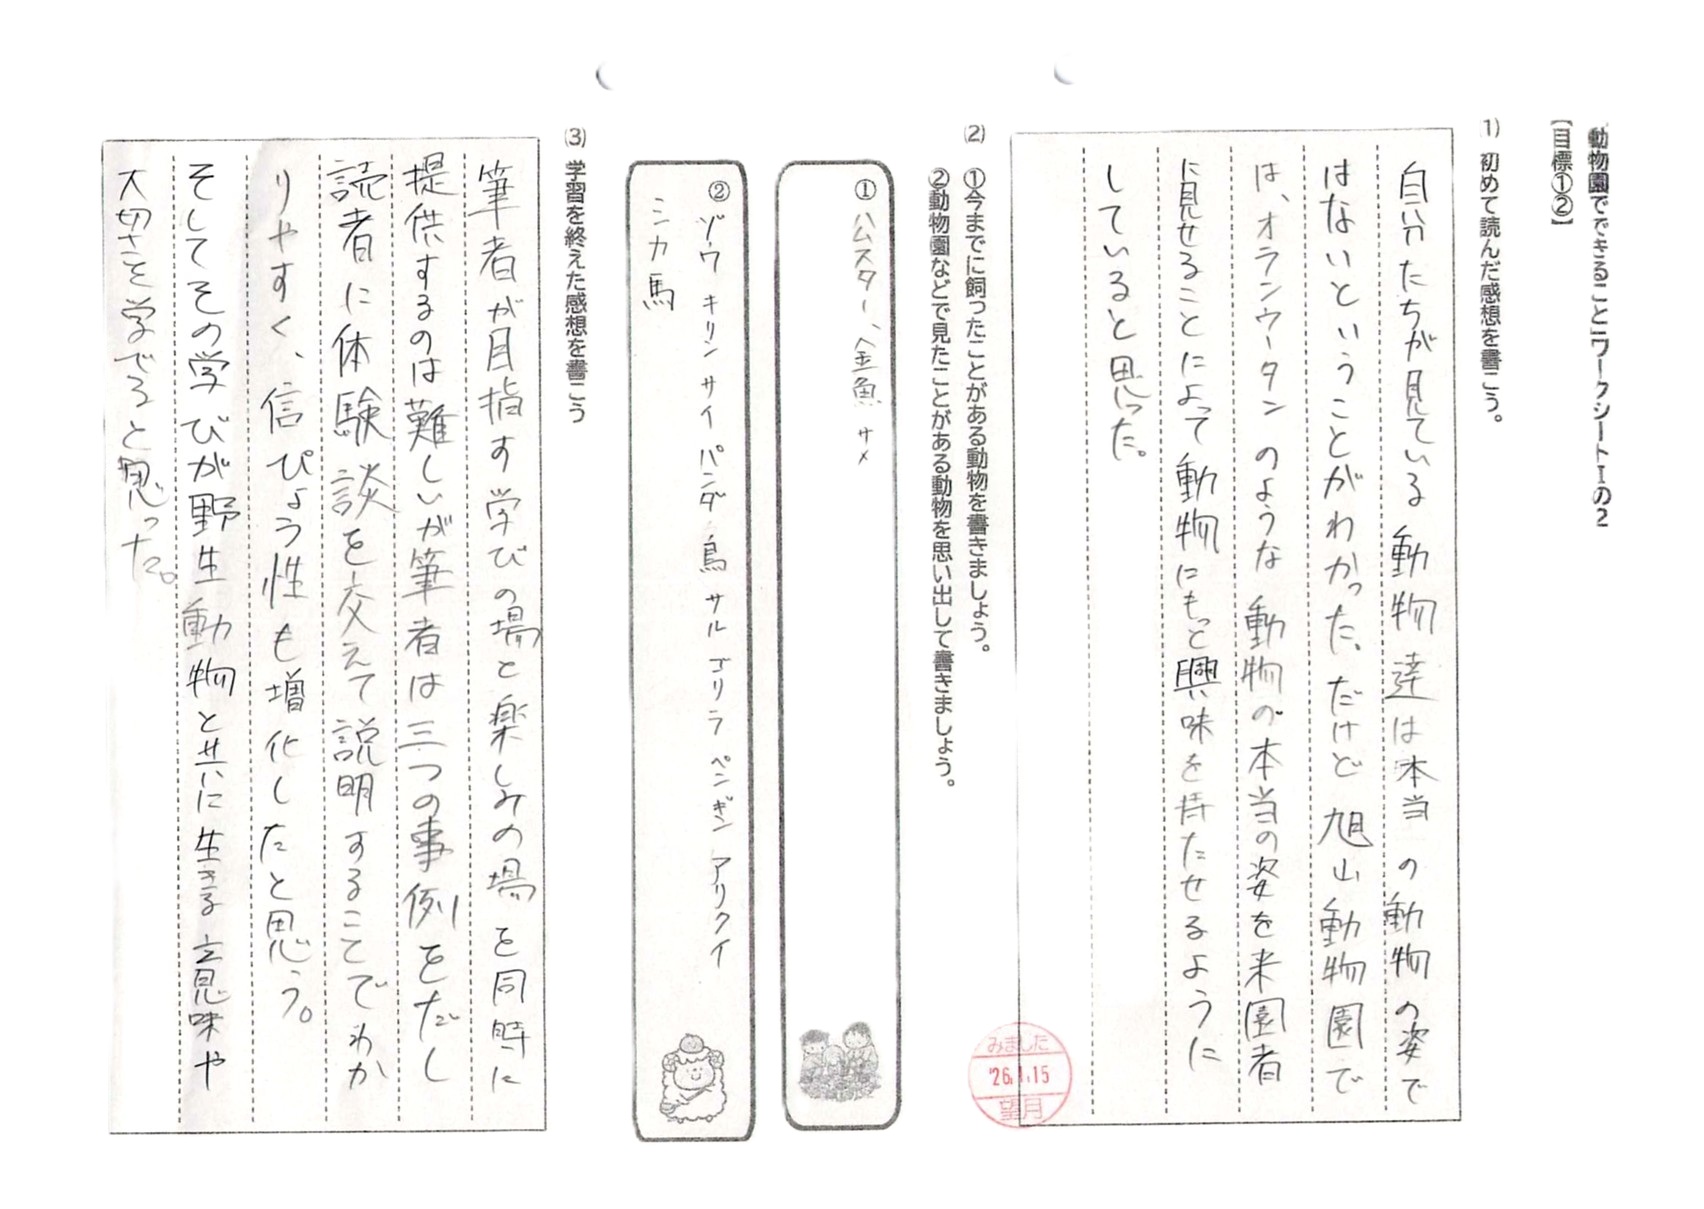 動物園でできること ワークシートⅠの2
【目標①②】
⑴ 初めて読んだ感想を書こう。
自分たちが見ている動物達は本当の動物の姿で
はないということがわかった。だけど旭山動物園で
は、オランウータンのような動物の本当の姿を来園者
に見せることによって動物にもっと興味を持たせるように
していると思った。
⑵ ①今までに飼ったことがある動物を書きましょう。
②動物園などで見たことがある動物を思い出して書きましょう。
① ハムスター、金魚 サメ
② ゾウ キリン サイ パンダ 鳥 サル ゴリラ ペンギン アリクイ
シカ 馬
⑶ 学習を終えた感想を書こう
筆者が目指す学びの場と楽しみの場を同時に
提供するのは難しいが筆者は三つの事例をだし
読者に体験談を交えて説明することでわか
りやすく、信ぴょう性も増化したと思う。
そしてその学びが野生動物と共に生きる意味や
大切さを学べると思った。
みました
'26.1.15
望月